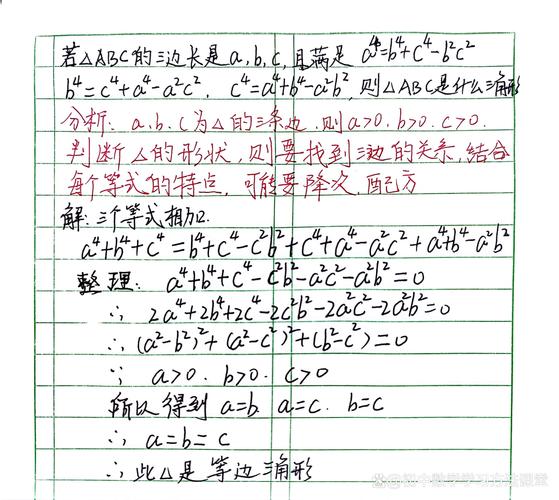 若△ABC的三边长是a,b,c,且满足 a⁴=b⁴+c⁴-b²c²
b⁴=c⁴+a⁴-a²c², c⁴=a⁴+b⁴-a²b²,则△ABC是什么三角形
分析: a.b.c为△的三条边.则a>0.b>0.c>0.
判断△的形状,则要找到三边的关系,结合
每个等式的特点,可能要降次,配方
解:三个等式相加.
a⁴+b⁴+c⁴=b⁴+c⁴-c²b²+c⁴+a⁴-a²c²+a⁴+b⁴-a²b²
整理: a⁴+b⁴+c⁴-c²b²-a²c²-a²b²=0
∴ 2a⁴+2b⁴+2c⁴-2c²b²-2a²c²-2a²b²=0
∴ (a²-b²)²+(a²-c²)²+(b²-c²)=0
∵ a>0. b>0. c>0
所以得到 a=b. a=c. b=c
∴ a=b=c
∴ 此△是等边三角形